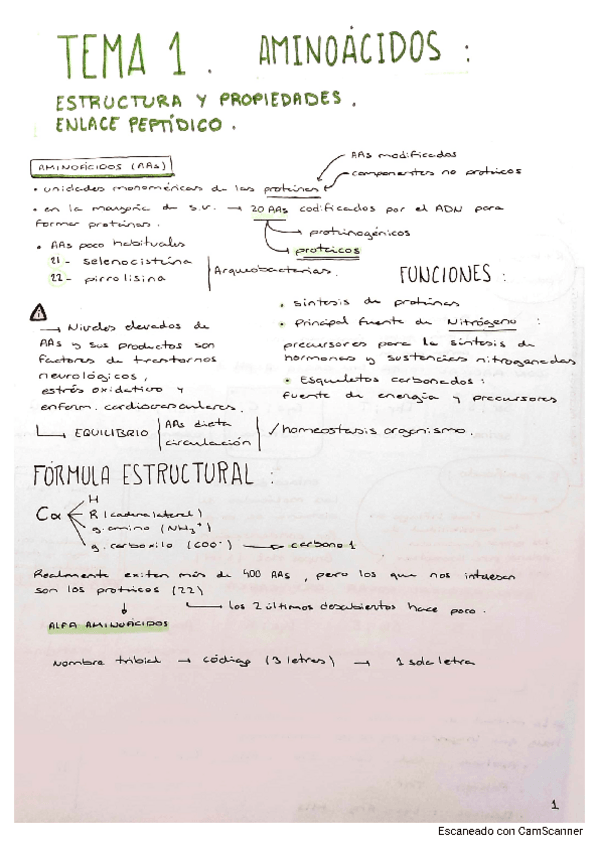 TEMA 1. AMINOÁCIDOS:
ESTRUCTURA Y PROPIEDADES.
ENLACE PEPTÍDICO.
AMINOÁCIDOS (AAs)
AAs modificados
componentes no proteicos
• unidades monoméricas de las proteínas
• en la mayoría de s.v. → 20 AAs codificados por el ADN para
formar proteínas.
proteinogénicos
proteicos
• AAs poco habituales
21 - selenocisteína
22 - pirrolisina
Arqueobacterias.
FUNCIONES:
• síntesis de proteínas
• Principal fuente de Nitrógeno:
precursores para la síntesis de
hormonas y sustancias nitrogenadas
• Esqueletos carbonados:
fuente de energía y precursores
→ Niveles elevados de
AAs y sus productos son
factores de trastornos
neurológicos,
estrés oxidativo y
enferm. cardiovasculares.
EQUILIBRIO | AAs dieta
circulación | ✓ homeostasis organismo.
FÓRMULA ESTRUCTURAL:
Cα
H
R (cadena lateral)
g. amino (NH₃⁺)
g. carboxilo (COO⁻) → carbono 1
Realmente existen más de 400 AAs, pero los que nos interesan
son los proteicos (22)
los 2 últimos descubiertos hace poco.
ALFA AMINOÁCIDOS
Nombre tribial → código (3 letras) → 1 sola letra
1
Escaneado con CamScanner